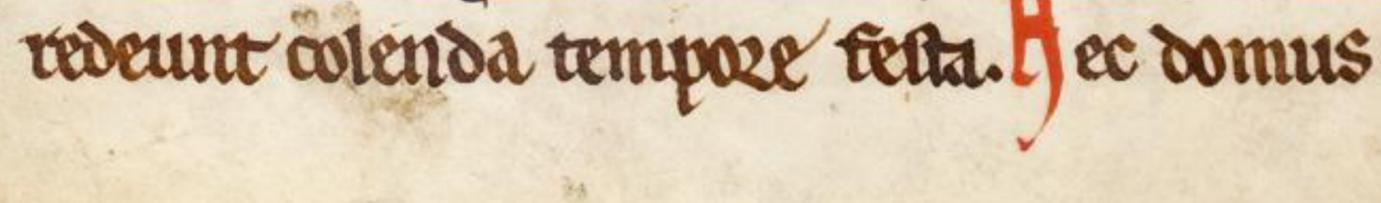 redeunt colenda tempore festa. Hec domus